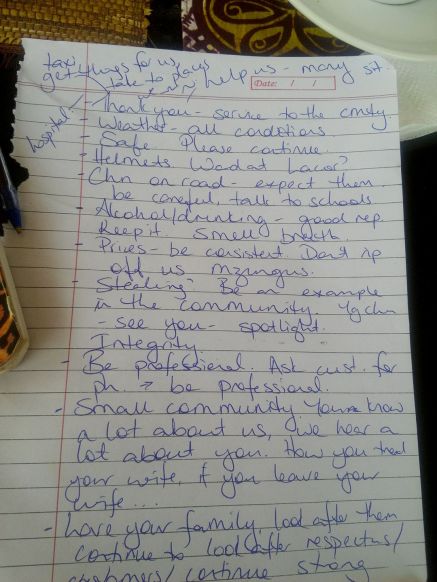 taxi,
get things for us
take to places
help us - many sit.
hospital
Date: / /
- Thank you - service to the cmty.
- Weather - all conditions
- Safe. Please continue.
- Helmets. Ward at Lacor?
- Chn on road - expect them
be careful, talk to schools
- Alcohol/drinking - good rep.
Keep it. Smell breath.
- Prices - be consistent. Don't rip
off us mzungus.
- Stealing? Be an example
in the community. Yg chn
- see you - spotlight.
Integrity
- Be professional. Ask cust. for
ph. → be professional.
- Small community. You know
a lot about us, we hear a
lot about you. How you treat
your wife, if you leave your
wife...
- Love your family, look after them
continue to look after respectus/
customers/ continue strong